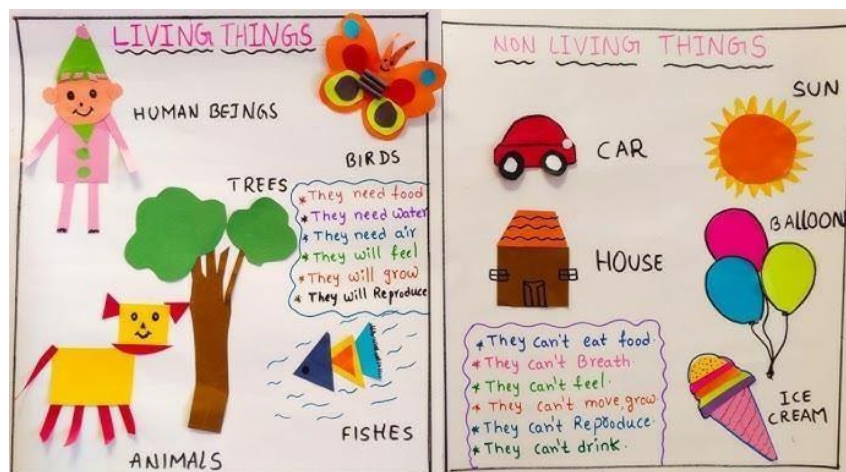 LIVING THINGS
HUMAN BEINGS
BIRDS
TREES
* They need food
* They need water
* They need air
* They will feel
* They will grow
* They will Reproduce
FISHES
ANIMALS
NON LIVING THINGS
SUN
CAR
BALLOON
HOUSE
* They can't eat food.
* They can't Breath.
* They can't feel.
* They can't move, grow.
* They can't Reproduce.
* They can't drink.
ICE
CREAM